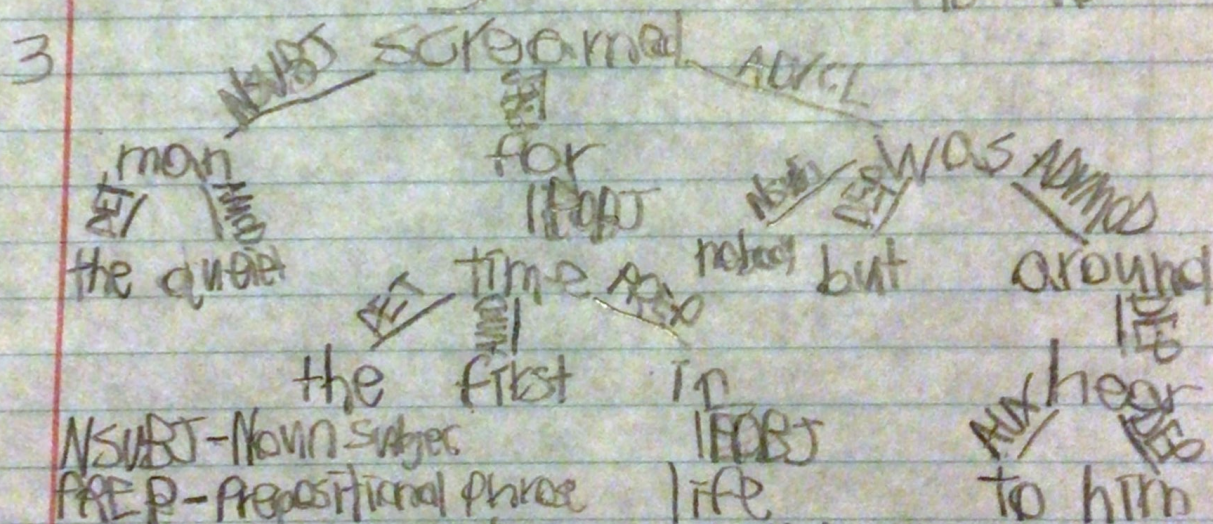 3 screamed
NSUBJ ADVCL
man for was
DET AMOD POBJ DEP ADVMOD
the quiet time nobody but around
DET AMOD DEP
the first in hear
NSUBJ-Noun subjec POBJ AUX DEP
PREP-Prepositional phrase life to him